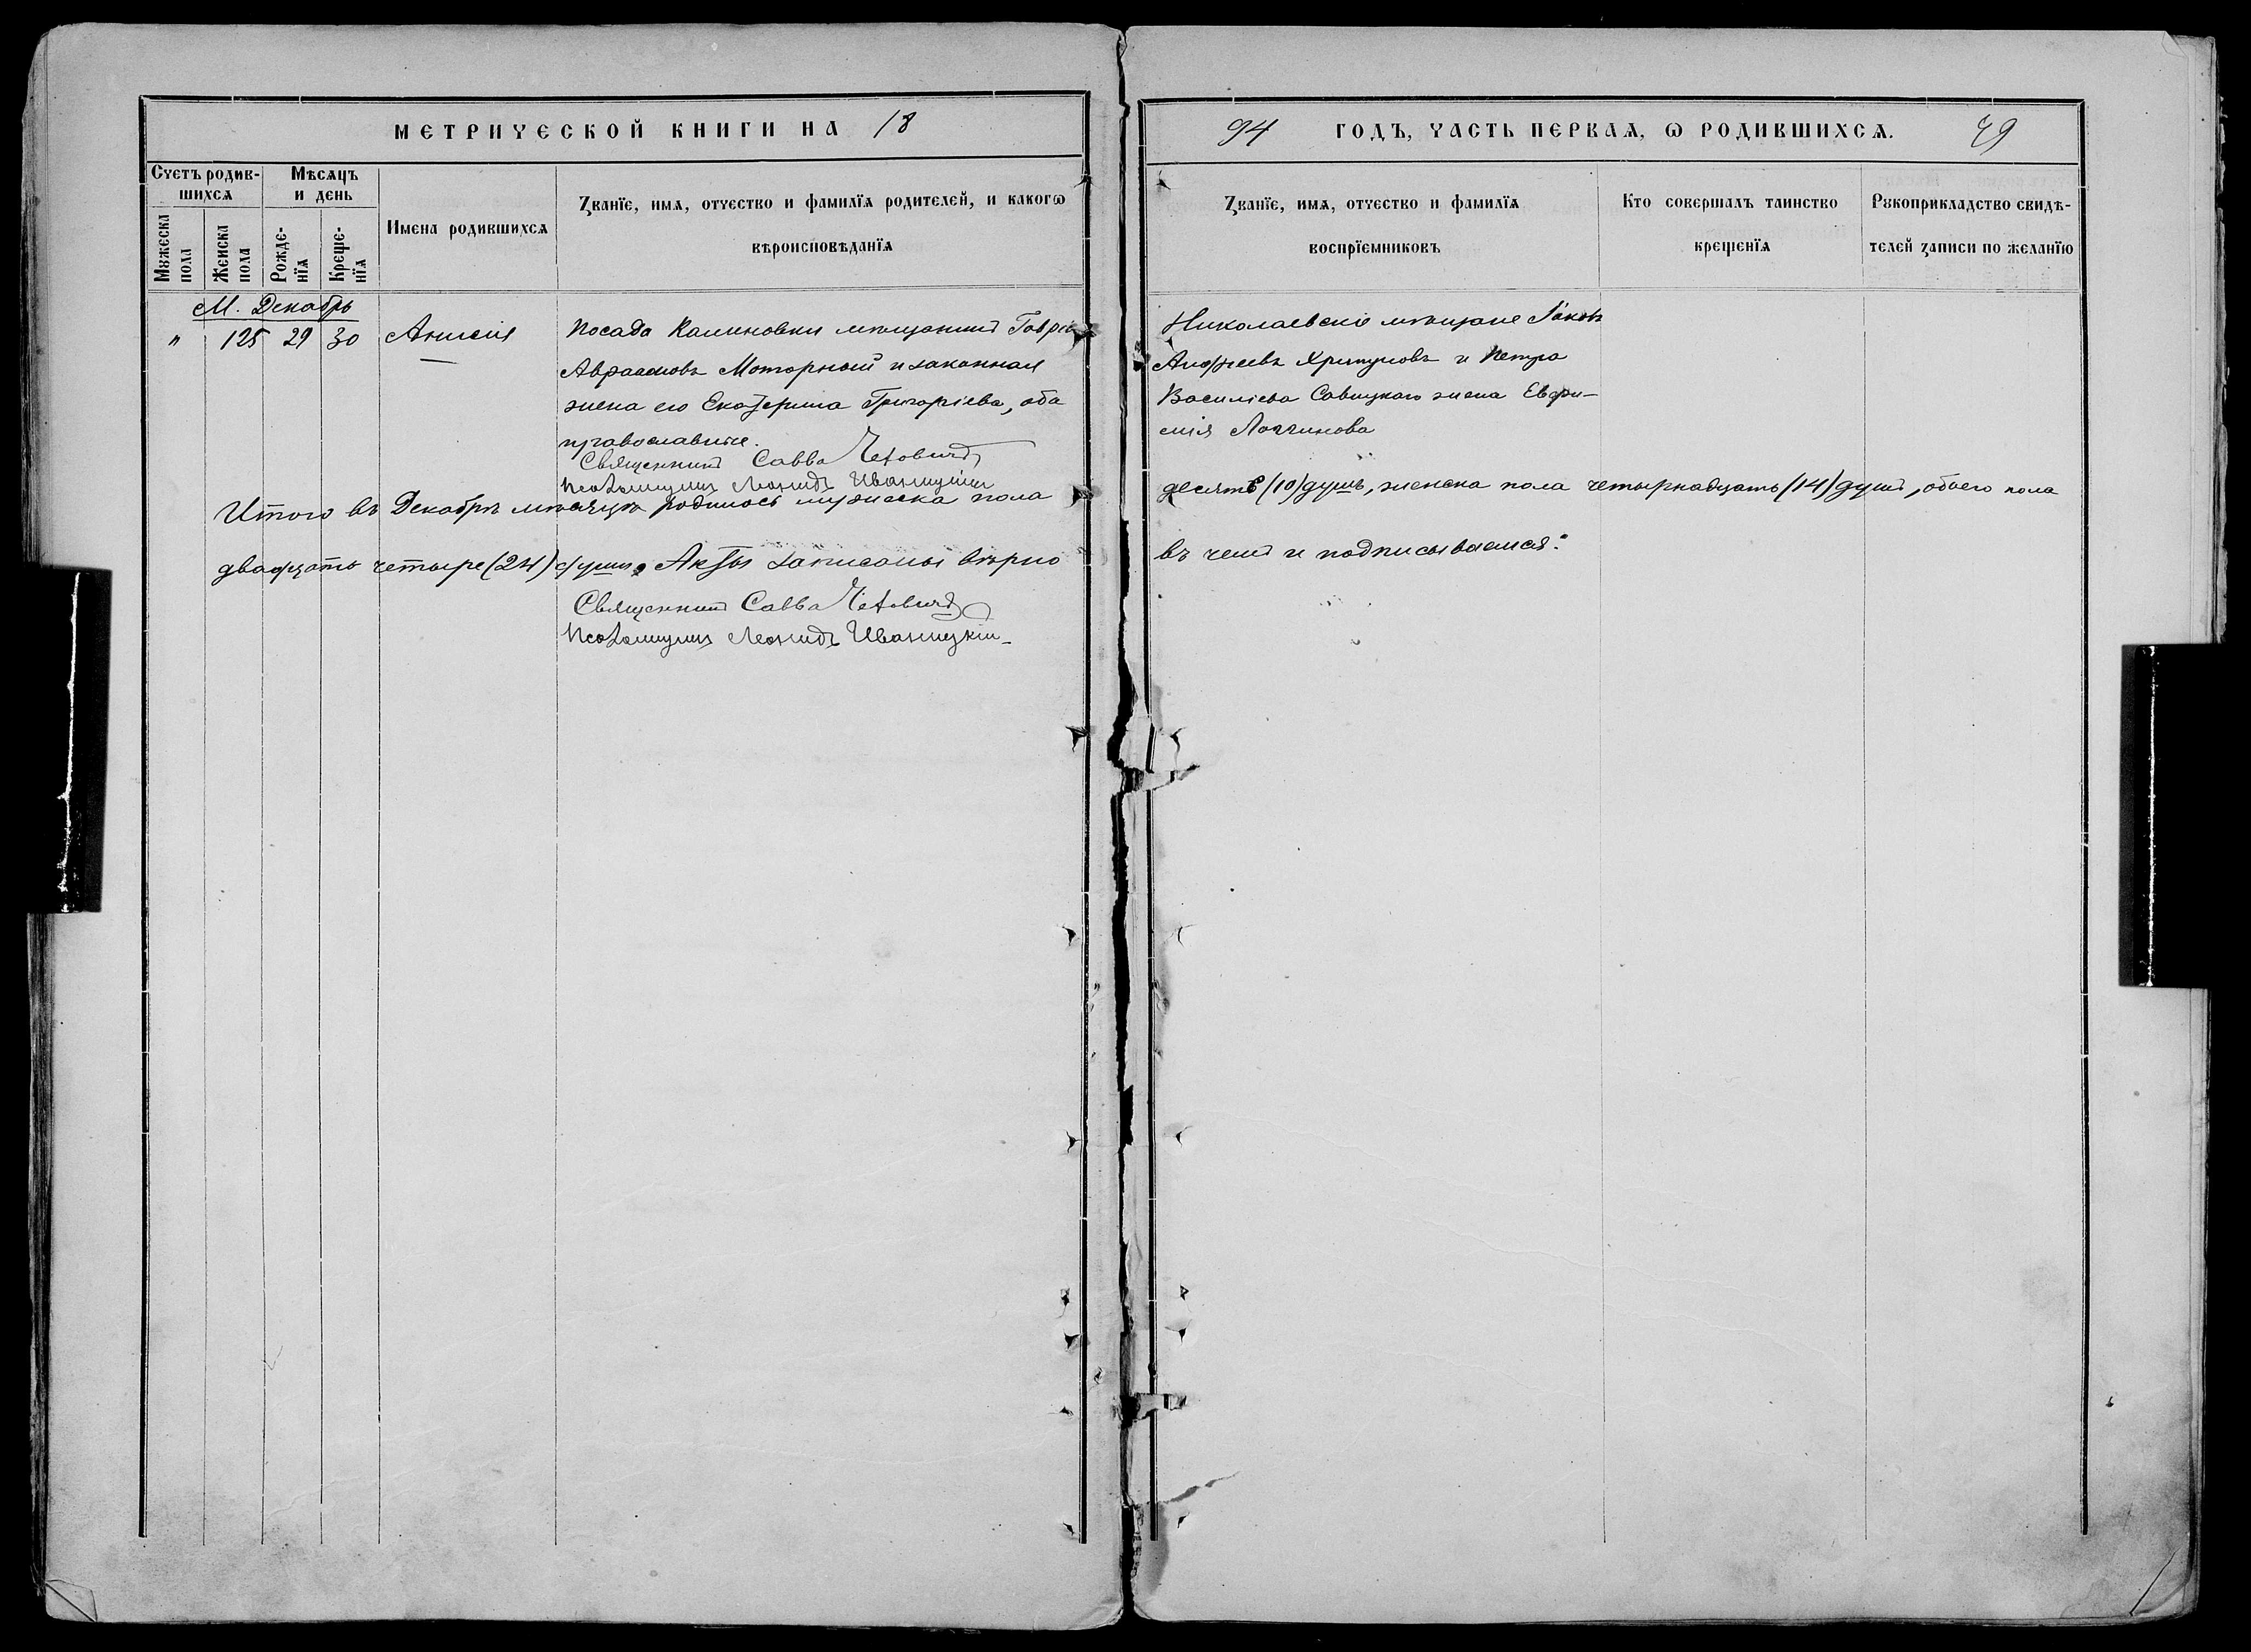 МЕТРИЧЕСКОЙ КНИГИ НА 18
94 ГОДЪ, ЧАСТЬ ПЕРВАѦ, Ѡ РОДИВШИХСѦ. 79
Счетъ родив-
шихсѧ
Мѣсѧцъ
и день
Мꙋжеска
пола
Женска
пола
Рожде-
нїѧ
Креще-
нїѧ
Имена родившихсѧ
Ꙁванїе, имѧ, отчество и фамилїѧ родителей, и какогѡ
вѣроисповѣданїѧ
Ꙁванїе, имѧ, отчество и фамилїѧ
воспрїемниковъ
Кто совершалъ таинство
крещенїѧ
Рꙋкоприкладство свидѣ-
телей ꙁаписи по желанїю
М. Декабрь
" 125 29 30 Анисія
Посада Калиновки мѣщанинъ Гаврі
Авраамовъ Моторный и законная
жена его Екатерина Григоріева, оба
православные.
Священникъ Савва
Псаломщикъ Леонидъ Иваницкій
Николаевскіе мѣщане Іаковъ
Андреевъ Хрипуновъ и Петра
Василіева Савицкаго жена Евфи-
мія Логгинова
Итого въ Декабрѣ мѣсяцѣ родилось мужеска пола
десять (10) душъ, женска пола четырнадцать (14) душъ, обоего пола
двадцать четыре (24) души. Акты записаны вѣрно
въ чемъ и подписываемся:
Священникъ Савва
Псаломщикъ Леонидъ Иваницкій